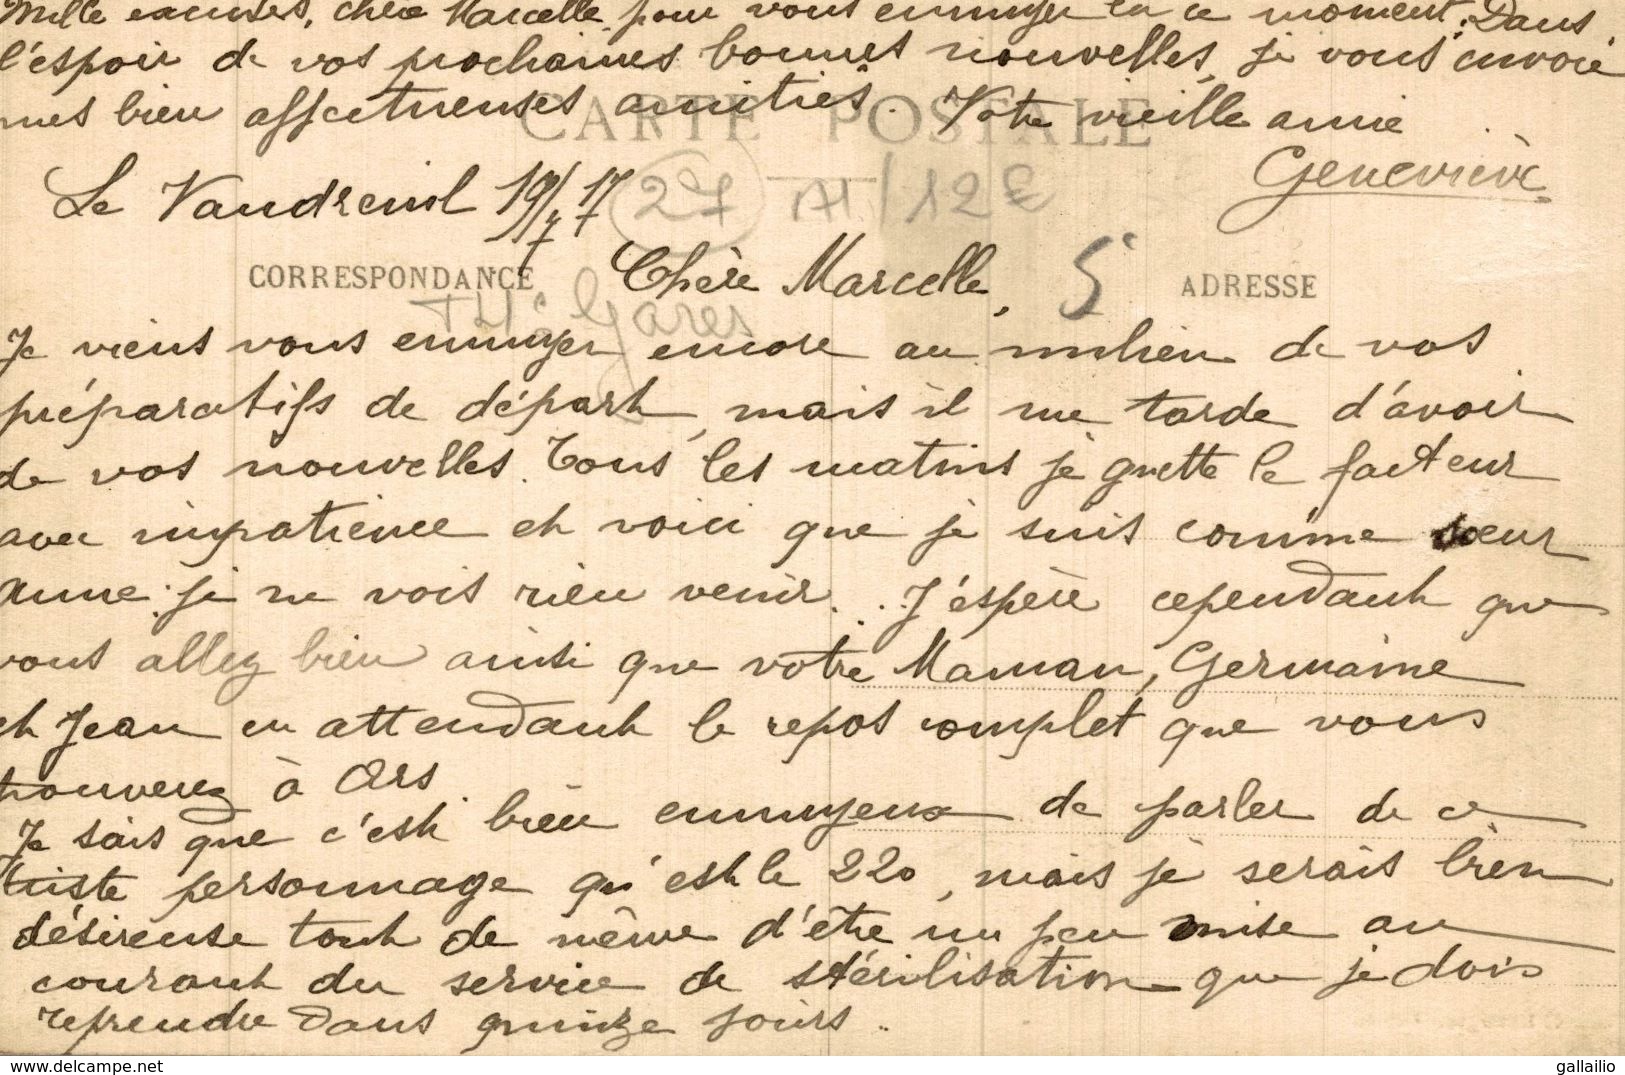 Mille excuses, chère Marcelle, pour vous ennuyer en ce moment. Dans
l'espoir de vos prochaines bonnes nouvelles, je vous envoie
mes bien affectueuses amitiés. Votre vieille amie
CARTE POSTALE
Geneviève
Le Vaudreuil 19/7 17
27 /12 E
CORRESPONDANCE
Chère Marcelle,
5
ADRESSE
Th. Gares
Je viens vous ennuyer encore au milieu de vos
préparatifs de départ, mais il me tarde d'avoir
de vos nouvelles. Tous les matins je guette le facteur
avec impatience et voici que je suis comme sœur
Anne : je ne vois rien venir. . J'espère cependant que
vous allez bien ainsi que votre Maman, Germaine
et Jean en attendant le repos complet que vous
trouverez à Ars
Je sais que c'est bien ennuyeux de parler de ce
triste personnage qu'est le 220, mais je serais bien
désireuse tout de même d'être un peu mise au
courant du service de stérilisation que je dois
reprendre dans quinze jours.
gallailio